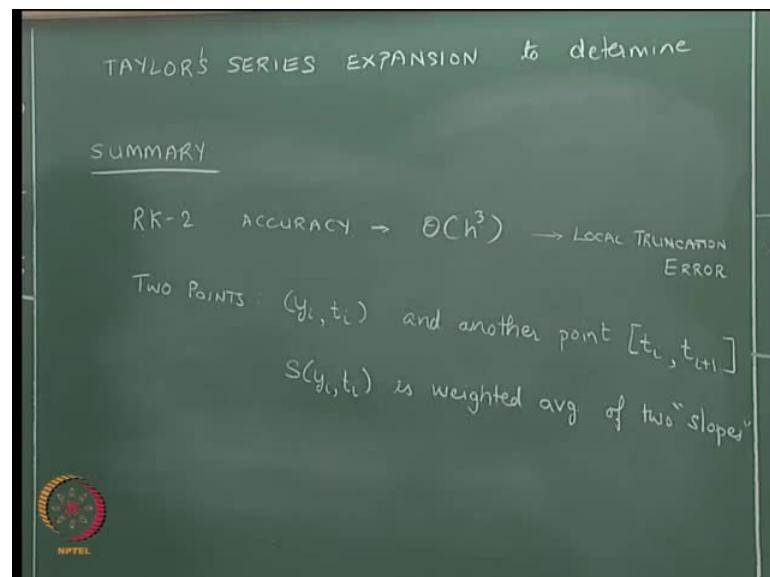 TAYLOR'S SERIES EXPANSION to determine
SUMMARY
RK-2 ACCURACY → O(h³) → LOCAL TRUNCATION
ERROR
TWO POINTS : (yᵢ, tᵢ) and another point [tᵢ, tᵢ₊₁]
S(yᵢ, tᵢ) is weighted avg of two "slopes"
NPTEL